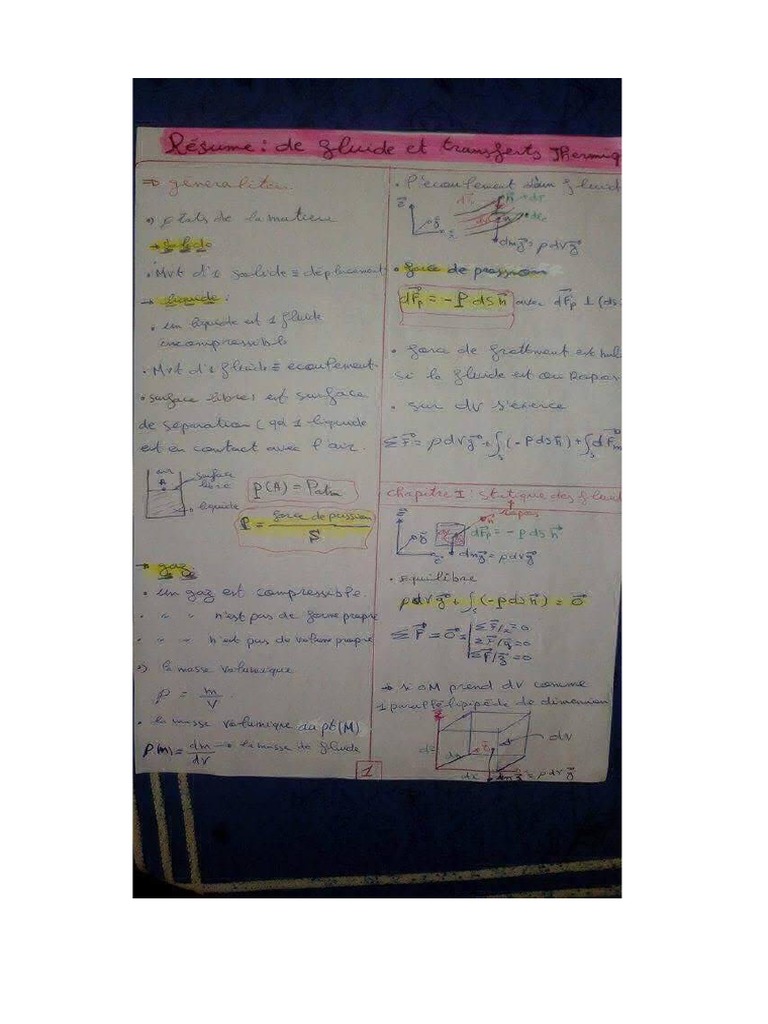 Résume : de fluide et transferts Thermiq
⇒ généralités
•) états de la matière
→ solide
• Mvt d'1 solide ≡ déplacement
→ liquide :
• un liquide est 1 fluide
incompressible
• Mvt d'1 fluide ≡ ecoulement
• surface libre : est surface
de separation ( qd 1 liquide
est en contact avec l'air.
air
A
surface
libre
liquide
P(A) = Patm
P = force de pression / S
→ gaz
• un gaz est compressible.
" " n'est pas de forme propre
" " n'est pas de volume propre
•) la masse volumique
ρ = m / V
• la masse volumique au pt (M)
ρ(M) = dm / dV → la masse de fluide
1
• l'écoulement d'un fluid
dm g⃗ = ρ dV g⃗
• force de pression
dF⃗p = - P ds n⃗ avec dF⃗p ⊥ (ds
• force de frottement est nul
si le fluide est au repos
• sur dV s'exerce
Σ F⃗ = ρ dV g⃗ + ∫s (- P ds n⃗) + ∫s dF⃗
Chapitre 1 : statique des fluid
repos
n⃗
dF⃗p = - P ds n⃗
dm g⃗ = ρ dV g⃗
• equilibre
ρ dV g⃗ + ∫s (- P ds n⃗) = 0⃗
Σ F⃗ = 0⃗ =
Σ F⃗/x = 0
Σ F⃗/y = 0
Σ F⃗/z = 0
→ si on prend dV comme
1 parallélépipède de dimension
dz
dV
dx
dm g⃗ = ρ dV g⃗